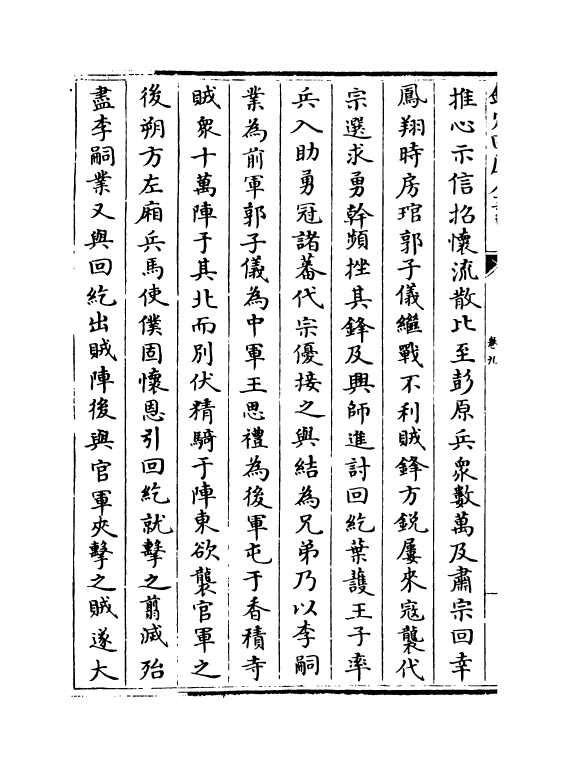 欽定四庫全書
卷九
推心示信招懷流散比至彭原兵衆數萬及肅宗回幸
鳳翔時房琯郭子儀繼戰不利賊鋒方銳屢來寇襲代
宗選求勇幹頻挫其鋒及興師進討回紇葉護王子率
兵入助勇冠諸蕃代宗優接之與結為兄弟乃以李嗣
業為前軍郭子儀為中軍王思禮為後軍屯于香積寺
賊衆十萬陣于其北而別伏精騎于陣東欲襲官軍之
後朔方左廂兵馬使僕固懷恩引回紇就擊之翦滅殆
盡李嗣業又與回紇出賊陣後與官軍夾擊之賊遂大